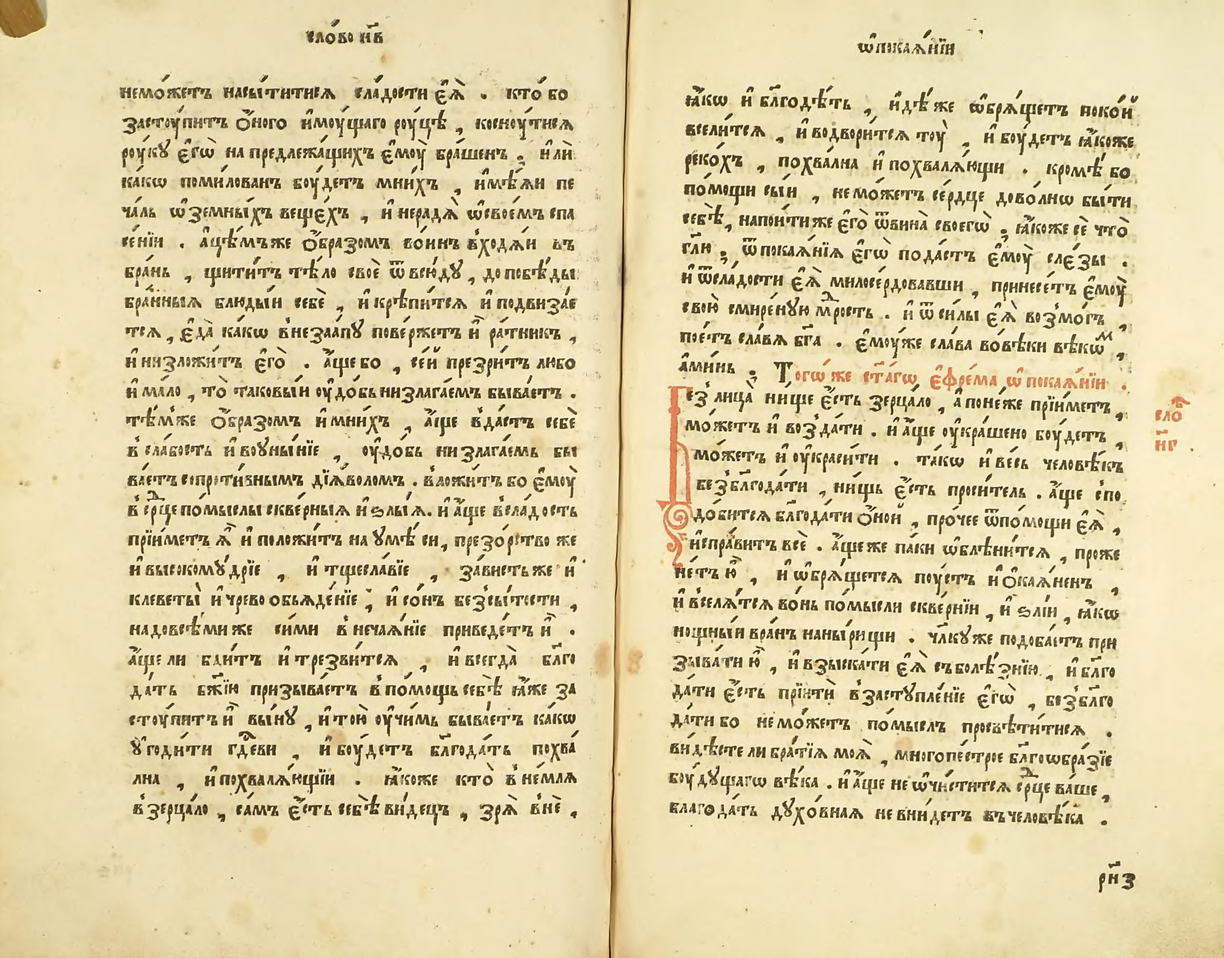 сло́во н҃в
немо́жетъ насы́титисѧ сла́дости є҆ѧ̀ . кто́ бо
застоу́питъ ѻ҆́ного и҆моу́щаго роу́цѣ , косноу́тисѧ
роу́кꙋ є҆гѡ̀ на предлежа́щихъ є҆моу̀ бра́шенъ ; и҆лѝ
ка́кѡ поми́лованъ боу́детъ мни́хъ , и҆мѣ́ѧи пе
ча́ль ѡ҆ земны́хъ ве́щехъ , и҆ нерадѧ̀ ѡ҆своє́мъ спа
се́нїи . а҆́цѣмъже ѻ҆́бразомъ во́инъ входѧ́и въ
бра́нь , щити́тъ тѣ́ло своѐ ѿвсю́дꙋ , до побѣ́ды
бра́нныѧ блюды́и себѐ , и҆ крѣпи́тсѧ и҆ подвиза́е
тсѧ , є҆да̀ ка́кѡ внеза́апꙋ пове́ржетъ и҆̀ ра́тникъ ,
и҆ низложи́тъ є҆го̀ . а҆́ще бо , се́й презри́тъ любо
и҆ ма́ло , то̀ таковы́и оу҆до́бь низлага́емъ быва́етъ .
тѣ́мже ѻ҆́бразомъ и҆ мни́хъ , а҆́ще вда́стъ себѐ
в сла́бость и҆ воуны́нїе , оу҆до́бь низлага́емь бы
ва́етъ сопроти́внымъ дїѧ́воломъ . вложи́тъ бо є҆моу̀
в ср҃це по́мыслы скве́рныѧ и҆ ѕлы́ѧ . и҆ а҆́ще в сла́дость
прїи́метъ ѧ҆̀ и҆ положи́тъ на ꙋ҆мѣ̀ си , презо́рство же
и҆ высокомꙋ́дрїе , и҆ тщесла́вїе , за́висть же и҆
клеветы̀ и҆ чрево обьѧде́нїе , и҆ со́нъ безсы́тости ,
надовсѣ́ми же си́ми в неча́ѧнїе приведе́тъ и҆̀ .
а҆́ще ли бди́тъ и҆ трезви́тсѧ , и҆ всегда̀ бл҃го
да́ть бж҃їю призыва́етъ в по́мощь себѣ̀ ꙗ҆́же за
стоу́питъ и҆̀ вы́нꙋ , и҆ то́ю оу҆чи́мь быва́етъ ка́кѡ
ꙋ҆годи́ти гд҇еви , и҆ боу́детъ бл҃года́ть похва́
лна , и҆ похвалѧ́ющїи . ꙗ҆́коже кто̀ в не́млѧ
в зерца́ло , са́мъ є҆́сть себѣ̀ ви́децъ , зрѧ̀ в нѐ ,
ѡ҆покаѧ́нїи
ꙗ҆́кѡ и҆ бл҃годѣ́ть , и҆дѣ́ же ѡ҆брѧ́щетъ поко́й
всели́тсѧ , и҆ водвори́тсѧ тоу̀ , и҆ боу́детъ ꙗ҆́коже
реко́хъ , похва́лна и҆ похвалѧ́ющи . кромѣ́ бо
по́мощи сы́и , немо́жетъ се́рдце дово́лнѡ бы́ти
себѣ̀ , напои́тиже є҆го̀ ѿвина̀ своегѡ̀ ; ꙗ҆́коже сѐ что̀
гл҃ю ; ѿпокаѧ́нїѧ є҆гѡ̀ пода́стъ є҆моу̀ сле́зы .
и҆ ѿсла́дости є҆ѧ̀ милосе́рдовавши , принесе́тъ є҆моу̀
свою̀ смире́ную мⷣрость . и҆ ѿ си́лы є҆ѧ̀ возмо́гъ ,
пое́тъ сла́вѧ бг҃а . є҆моу́же сла́ва вовѣ́ки вѣкѡⷨ ,
а҆ми́нь . Тогѡ́ же ст҃а́гѡ є҆фре́ма ѡ҆ покаѧ́нїи .
сло́ н҃г
Безлица̀ ни́ще є҆́сть зерца́ло , а҆ поне́же прїи́метъ ,
мо́жетъ и҆ возда́ти . и҆ а҆́ще оу҆кра́шено боу́детъ ,
мо́жетъ и҆ оу҆краси́ти . та́кѡ и҆ ве́сь человѣ́къ
без бл҃года́ти , ни́щь є҆́сть проси́тель . а҆́ще спо
до́битсѧ бл҃года́ти ѻ҆́ной , про́чее ѿпо́мощи є҆ѧ̀ ,
и҆спра́витъ всѐ . а҆́ще же па́ки ѡ҆блѣни́тсѧ , проже
не́тъ ю҆̀ , и҆ ѡ҆брѧ́щетсѧ поу́стъ и҆ ѻ҆каѧ́ненъ ,
и҆ вселѧ́тсѧ во́нь по́мысли скве́рнїи , и҆ ѕлі́и , ꙗ҆́кѡ
нощны́й вра́нъ наны́рищи . чл҃кꙋ́же подоба́етъ при
зыва́ти ю҆̀ , и҆ взыска́ти є҆ѧ̀ съболѣ́знїю , и҆ бл҃го
да́ти є҆́сть прїи́тѝ в застꙋпле́нїе є҆гѡ̀ , без бл҃го
да́ти бо немо́жетъ по́мыслъ просвѣти́тисѧ .
ви́дѣсте ли бра́тїѧ моѧ̀ , многопе́строе бл҃гоѡбра́зїе
боу́дꙋщагѡ вѣ́ка . и҆ а҆́ще не ѡ҆чи́ститсѧ ср҃це ва́ше ,
благода́ть дꙋхо́внаѧ не вни́детъ въ человѣ́ка .
рн҃з